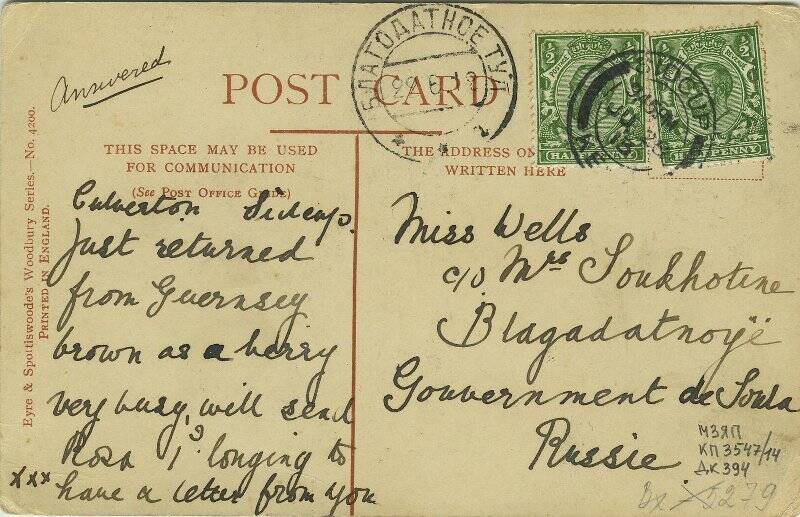 Answered
POST CARD
БЛАГОДАТНОЕ ТУЛ
29 6 12
½ ½
POSTAGE
HALF PENNY
SIDCUP
THIS SPACE MAY BE USED
FOR COMMUNICATION
(See Post Office Guide)
THE ADDRESS ON
WRITTEN HERE
Eyre & Spottiswoode's Woodbury Series.—No. 4200.
PRINTED IN ENGLAND.
Culverton Sidcup.
Just returned
from Guernsey
brown as a berry
very busy, will send
Rosa 1s longing to
have a letter from you
xxx
Miss Wells
c/o Mrs Soukhotine
Blagadatnoyé
Gouvernment de Toula
Russie
МЗЯП
КП 3547/14
ДК 394
5279